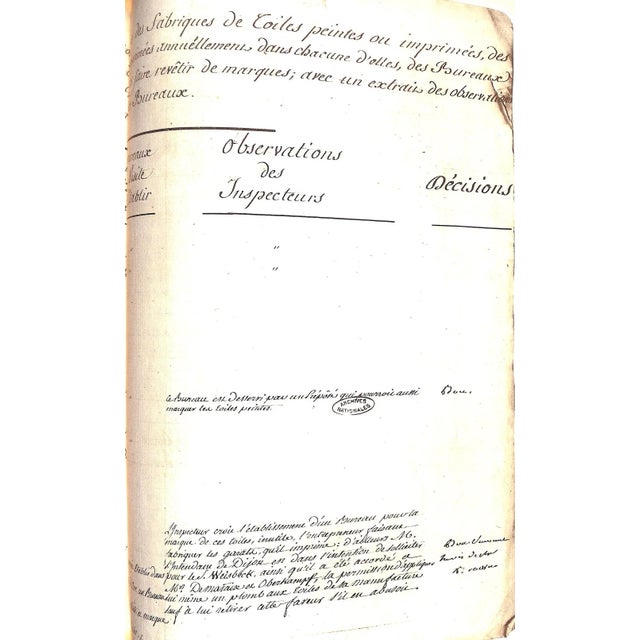 des Fabriques de Toiles peintes ou imprimées, des
annuellement dans chacune d'elles, des Bureaux
faire revêtir de marques; avec un extrait des observations
Bureaux.
Observations
des
Inspecteurs
Décisions
établir
"
"
Le Bureau est desservi par un Préposé qui pourroit aussi
marquer les toiles peintes.
Bon.
ARCHIVES
NATIONALES
L'Inspecteur croit l'établissement d'un Bureau pour la
marque de ces toiles, inutile, l'entrepreneur faisant
fabriquer les garats qu'il imprime; d'ailleurs M.
l'Intendant de Dijon est dans l'intention de solliciter
pour le S. ainsi qu'il a été accordé a
Mrs. et Oberkampf, la permission d'appliquer
lui même un plomb aux toiles de sa manufacture
sauf à lui retirer cette faveur s'il en abusoit.
Bon